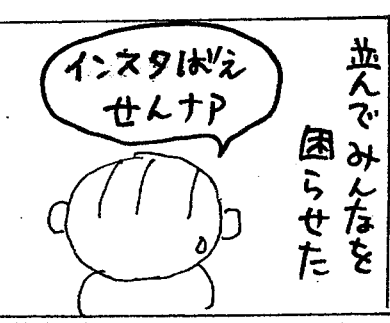 並んでみんなを
困らせた
インスタばえ
せんナァ